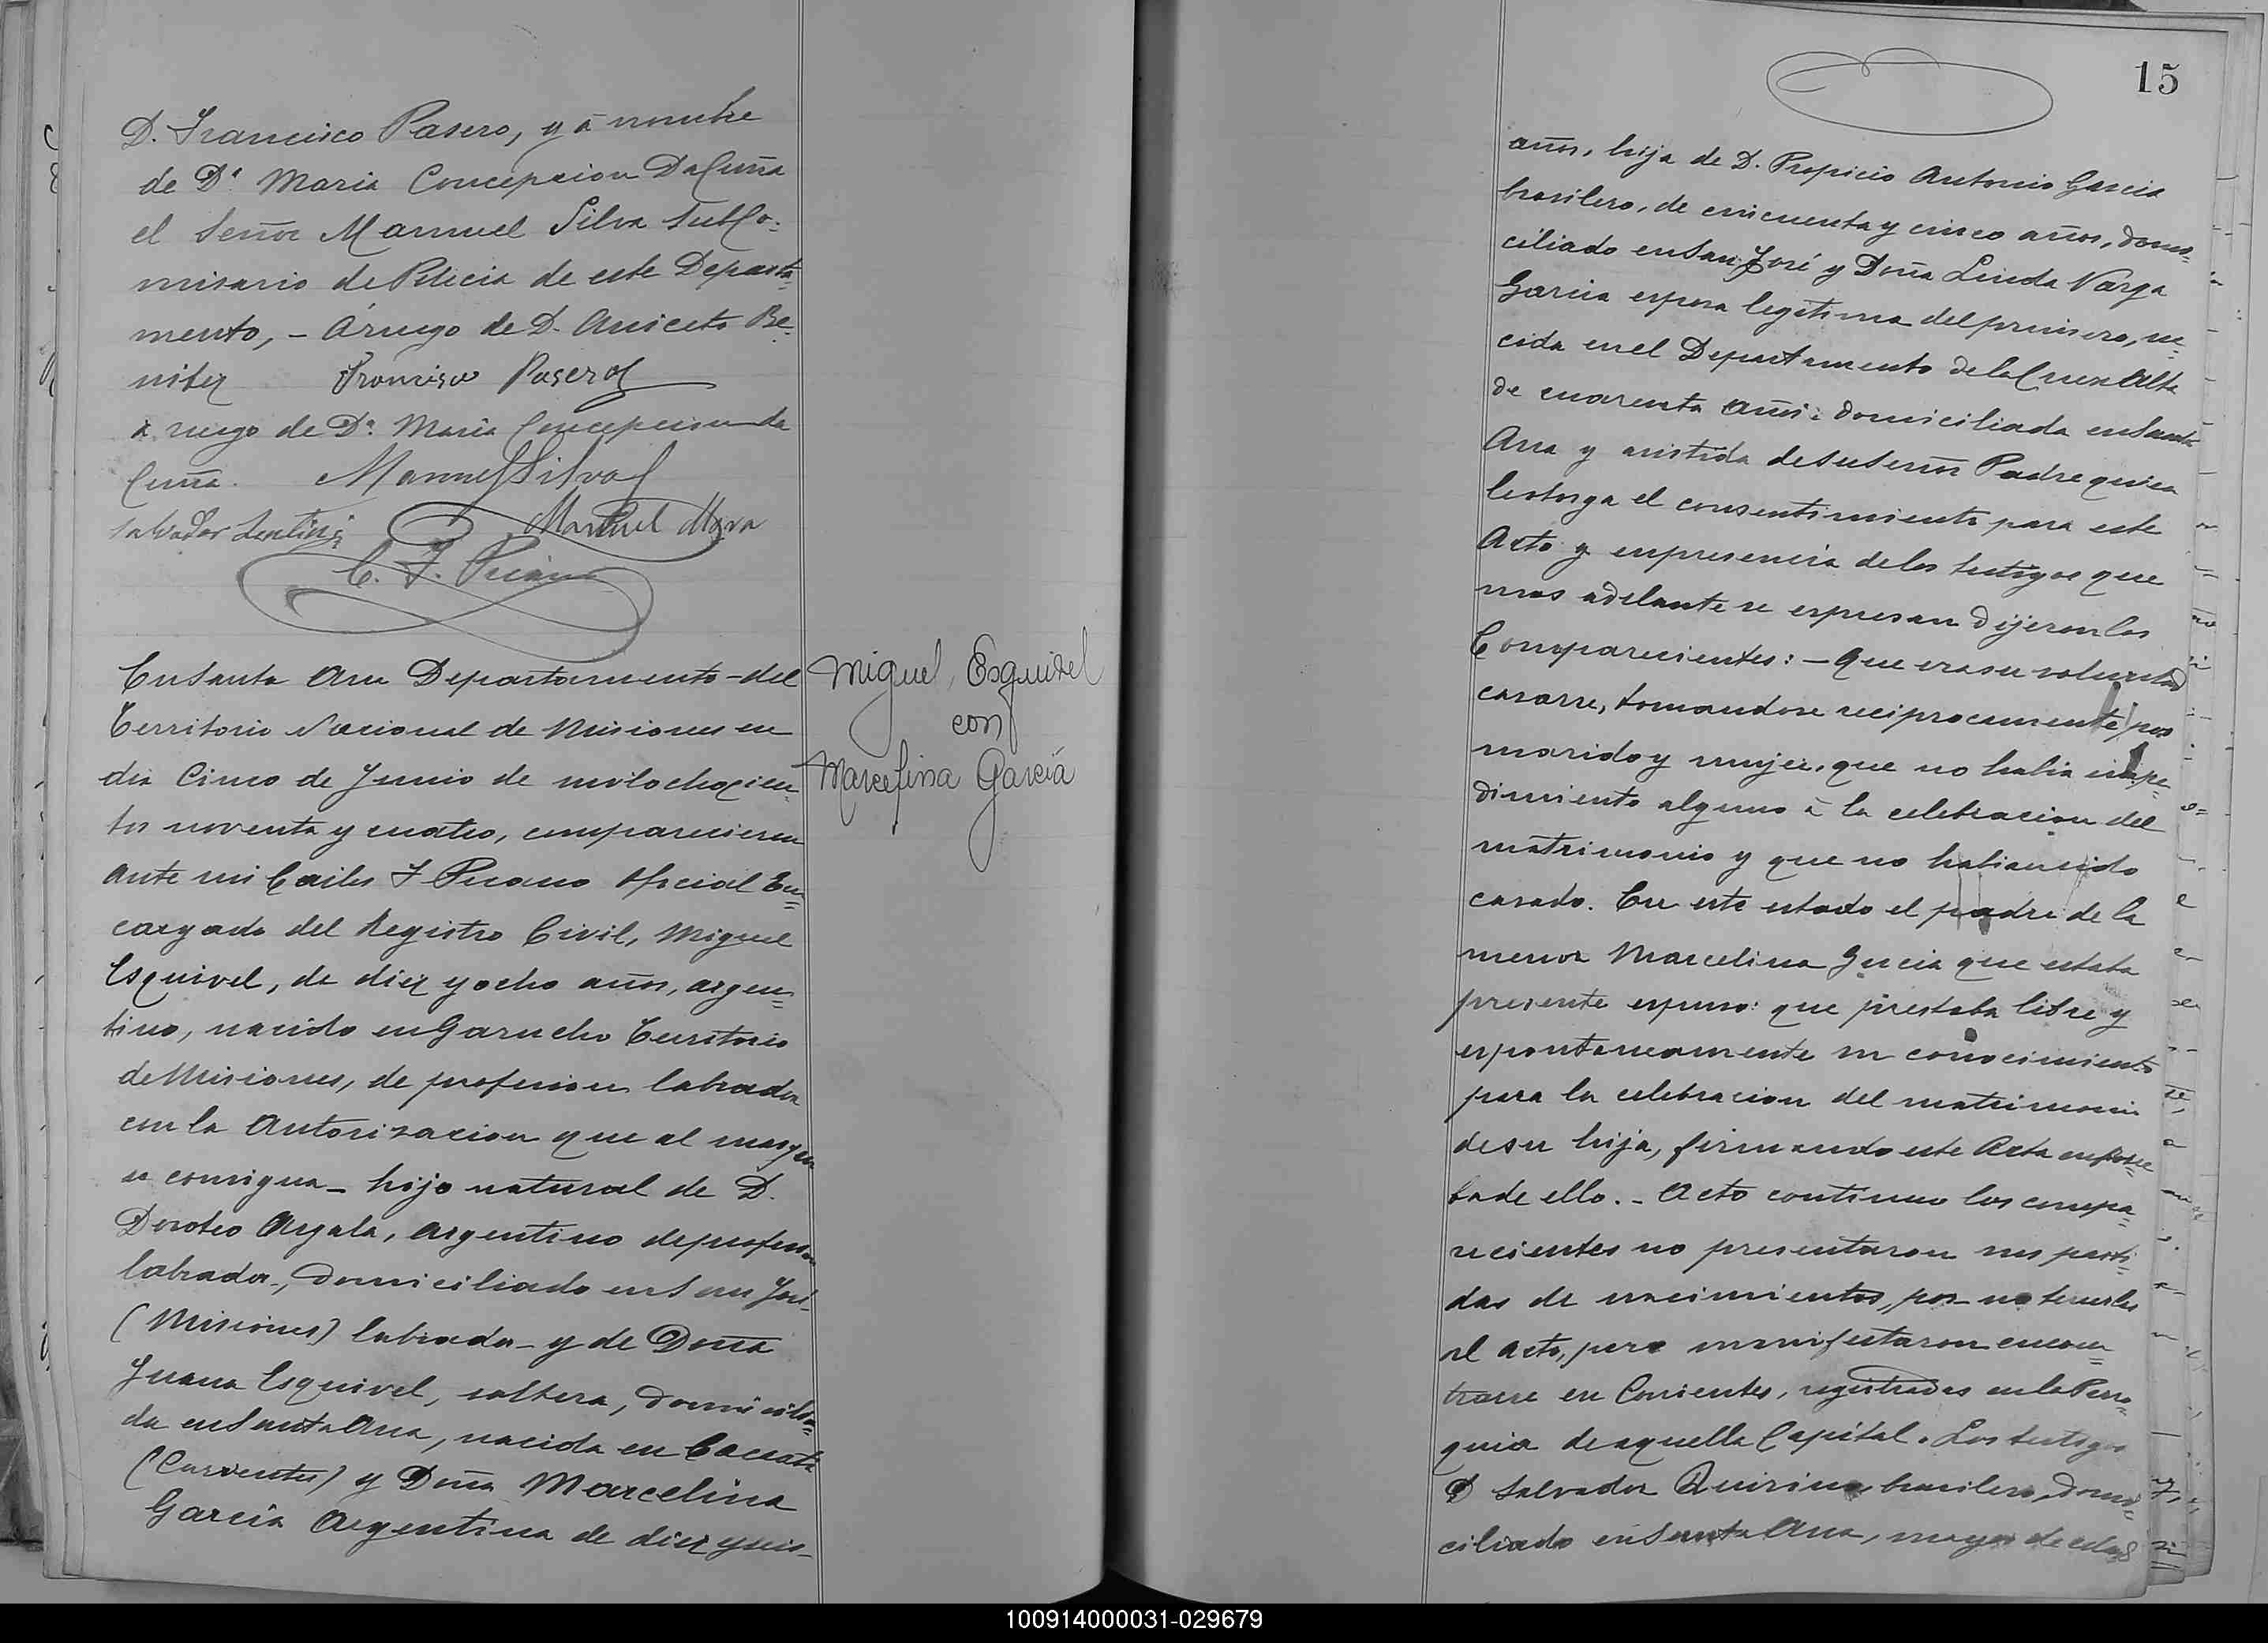 D. Francisco Pasero, y á nombre
de Dª Maria Concepcion Da Cuña
el Señor Manuel Silva SubCo-
misario de Policia de este Departa=
mento, - Áruego de D. Aniceto Be-
nitez Francisco Pasero
a ruego de Dª Maria Concepcion da
Cuña. Manuel Silva
Salvador Manuel Mora
C. F.
En Santa Ana Departamento del
Territorio Nacional de Misiones en
dia Cinco de Junio de mil ochocien-
tos noventa y cuatro, comparecieron
Ante mi Carlos F Oficial En=
cargado del Registro Civil, Miguel
Esquivel, de diez y ocho años, argen=
tino, nacido en Garucho Territorio
de Misiones, de profesion labrador
con la Autorizacion que al margen
se consigna - hijo natural de D.
Doroteo Ayala, argentino de profesion
labrador, domiciliado en San José
(Misiones) labrador - y de Doña
Juana Esquivel, soltera, domicilia=
da en Santa Ana, nacida en Caacati
(Corrientes) y Doña Marcelina
Garcia Argentina de diez y seis
Miguel Esquivel
con
Marcelina García
15
años, hija de D. Propicio Antonio Garcia
brasilero, de cincuenta y cinco años, domi-
ciliado en San José y Doña Linda Varga
Garcia esposa legitima del primero, na=
cida en el Departamento de la Cruz Alta
de cuarenta años domiciliada en Santa
Ana y asistida de su Señor Padre quien
le otorga el consentimiento para este
Acto y en presencia de los testigos que
mas adelante se espresan dijeron los
Comparecientes: - Que era su voluntad
casarse, tomandose reciprocamente por
marido y mujer, que no habia impe-
dimiento alguno á la celebracion del
matrimonio y que no habian sido
casado. En este estado el padre de la
menor Marcelina Garcia que estaba
presente espuso: que prestaba libre y
espontaneamente su conocimiento
para la celebracion del matrimonio
de su hija, firmando este Acta en prue=
ba de ello. - Acto continuo los compa=
recientes no presentaron sus parti=
das de nacimientos, por no tenerlas
al acto, pero manifestaron encon=
trarse en Corrientes, registradas en la Parro=
quia de aquella Capital. Los testigos
D Salvador Quirino, brasilero, domi-
ciliado en Santa Ana, mayor de edad
100914000031-029679